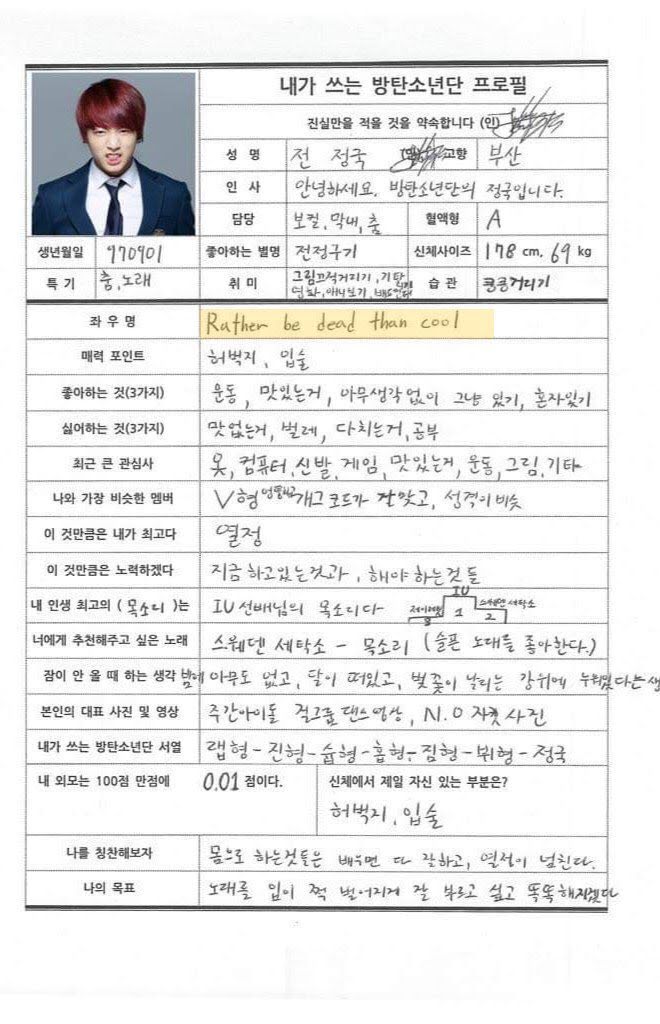 내가 쓰는 방탄소년단 프로필
진실만을 적을 것을 약속합니다 (인)
성 명 전 정국 고향 부산
인 사 안녕하세요. 방탄소년단의 정국입니다.
담당 보컬, 막내, 춤 혈액형 A
생년월일 970901 좋아하는 별명 전정구기 신체사이즈 178 cm, 69 kg
특 기 춤, 노래 취 미 그림끄적거리기, 기타 습 관 킁킁거리기
영화, 애니보기,
좌 우 명 Rather be dead than cool
매력 포인트 허벅지, 입술
좋아하는 것(3가지) 운동, 맛있는거, 아무생각없이 그냥 있기, 혼자있기
싫어하는 것(3가지) 맛없는거, 벌레, 다치는거, 공부
최근 큰 관심사 옷, 컴퓨터, 신발, 게임, 맛있는거, 운동, 그림, 기타
나와 가장 비슷한 멤버 V형 개그 코드가 잘맞고, 성격이 비슷
이 것만큼은 내가 최고다 열정
이 것만큼은 노력하겠다 지금 하고있는것과, 해야 하는것들
내 인생 최고의 ( 목소리 )는 IU 선배님의 목소리다 3 IU 1 스웨덴세탁소 2
너에게 추천해주고 싶은 노래 스웨덴 세탁소 - 목소리 (슬픈 노래를 좋아한다.)
잠이 안 올 때 하는 생각 밤에 아무도 없고, 달이 떠있고, 벚꽃이 날리는 강위에 누워있다는 생
본인의 대표 사진 및 영상 주간아이돌 걸그룹댄스영상, N.O 자켓사진
내가 쓰는 방탄소년단 서열 랩형-진형-슙형-홉형-짐형-뷔형-정국
내 외모는 100점 만점에 0.01 점이다. 신체에서 제일 자신 있는 부분은?
허벅지, 입술
나를 칭찬해보자 몸으로 하는것들은 배우면 다 잘하고, 열정이 넘친다.
나의 목표 노래를 입이 쩍 벌어지게 잘 부르고 싶고 똑똑해지겠다